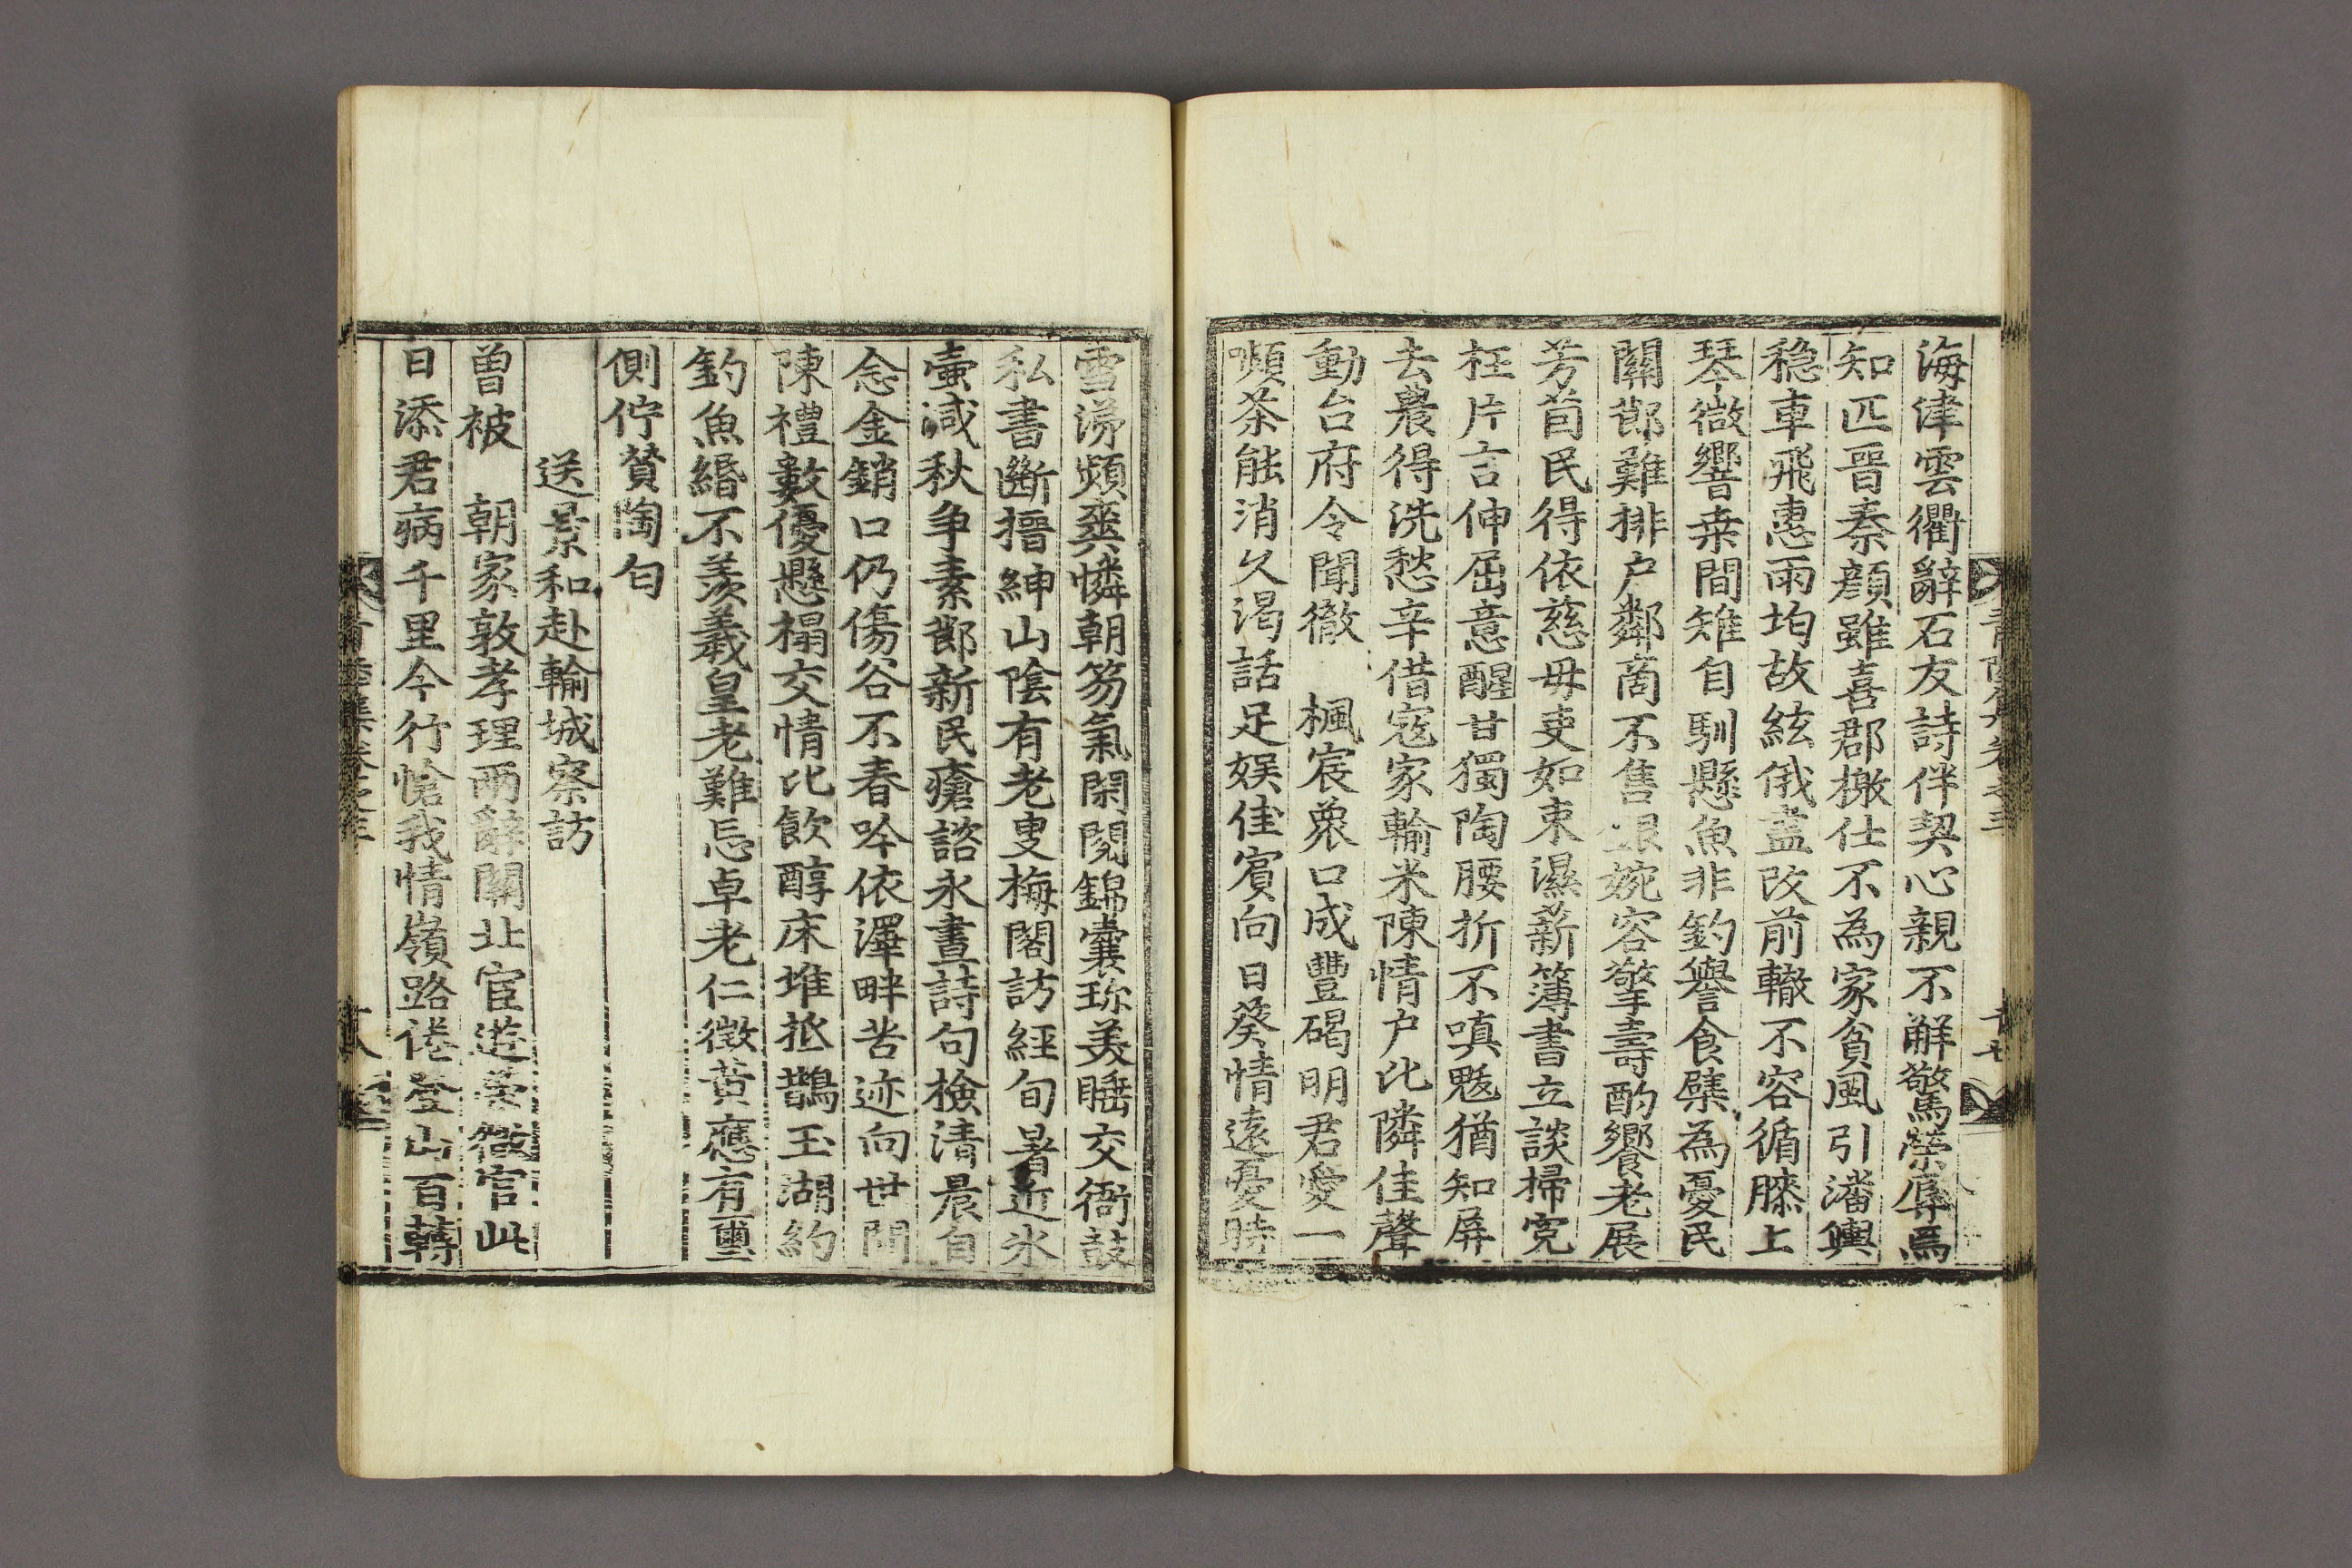 海津雲衢辭石友詩伴契心親不解驚榮辱焉
知匹晉秦顔雖喜郡檄仕不為家貧風引潘輿
稳車飛惠雨均故絃俄盖改前轍不容循膝上
琴微響桒間雉自馴懸魚非釣譽食檗為憂民
關鄧難排户鄰啇不售容擎壽酌饗老展
芳荀民得依慈母吏如束濕薪簿書立談掃寃
枉片言伸屈意醒甘獨陶腰折不嗔魃猶知屏
去農得洗愁辛借寇家輸米陳情户比隣佳聲
動台府令聞徹 楓宸衆口成豐碣明君愛一
嚬茶能消久渴話足娱佳賓向日葵情遠憂時
雪涕頻爽憐朝笏氣閑閱錦囊珎美睡交衙鼓
私書斷搢紳山陰有老叟梅閣訪經旬暑近氷
壷减秋争素鄧新民瘡諮永晝詩句檢清晨自
念金銷口仍傷谷不春吟依澤畔苦迹向世間
陳禮數優懸榻交情比飮醇床堆丞鵲玉湖約
釣魚緡不羡羲皇老難忘卓老仁徴黄應有璽
側佇賛陶匀
送景和赴輸城察訪
曽被 朝家敦孝理兩辭關北宦遊官此
日添君病千里今行愴我情嶺路倦登山百轉